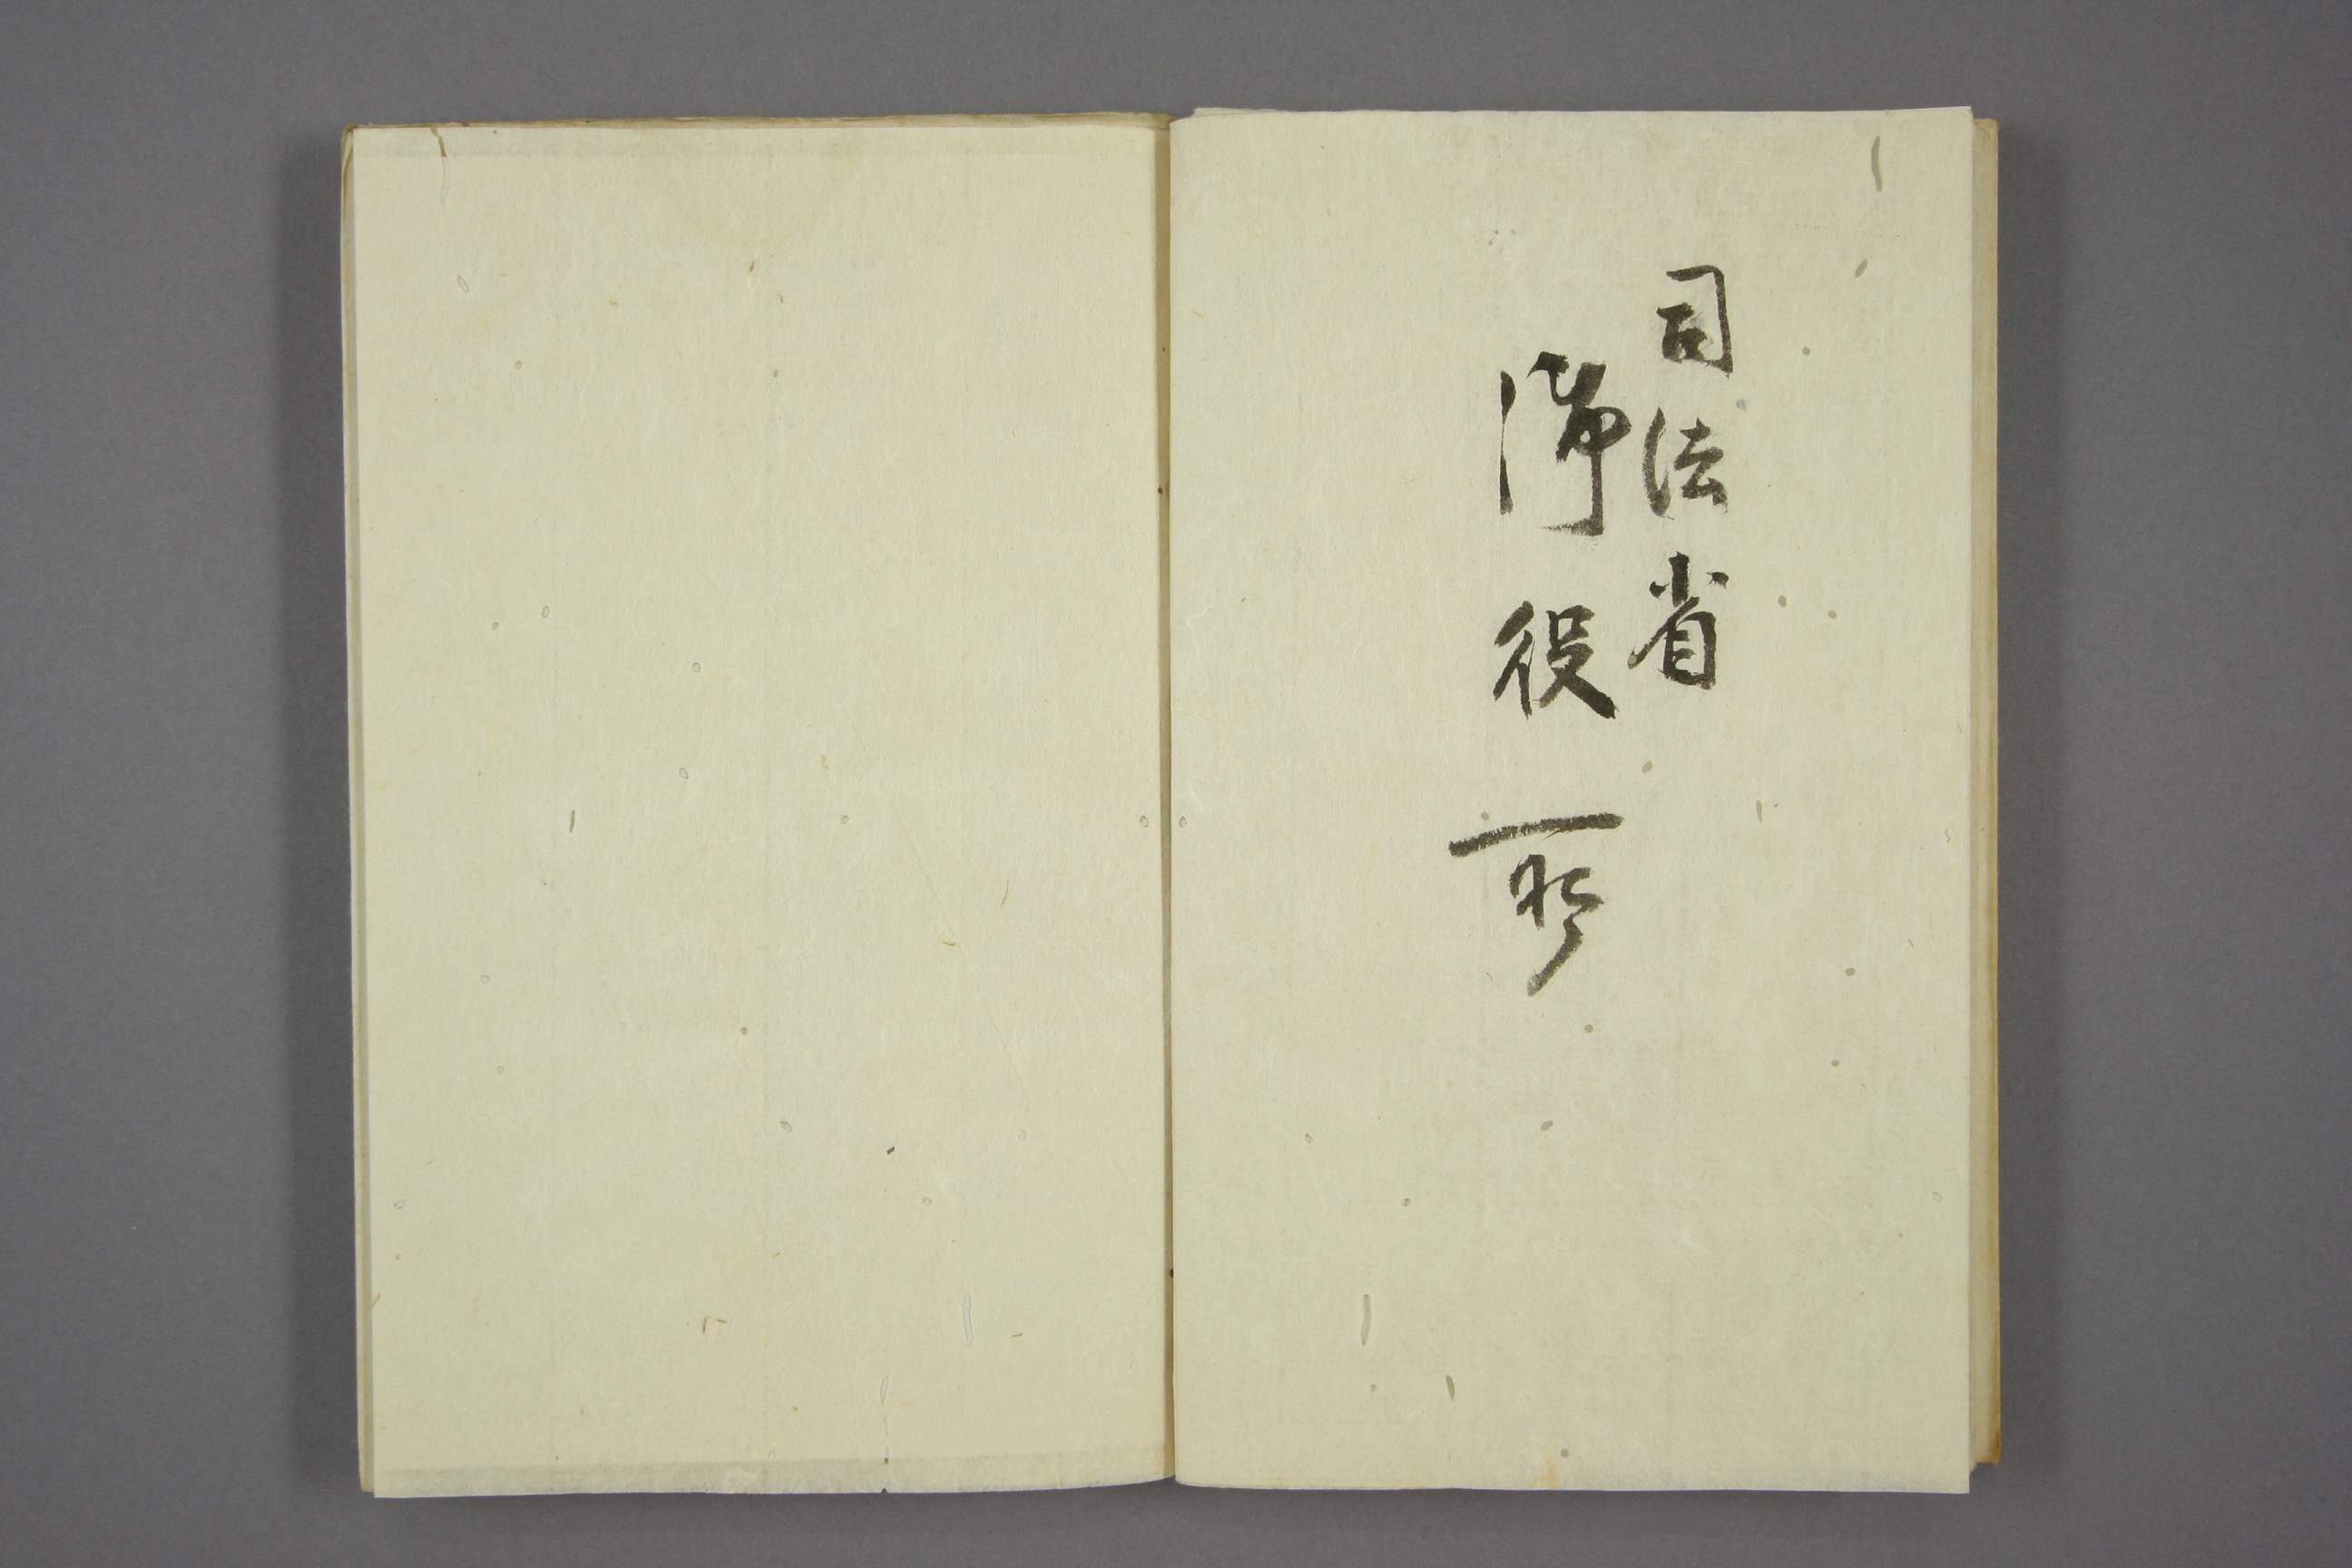 司法省
御役所